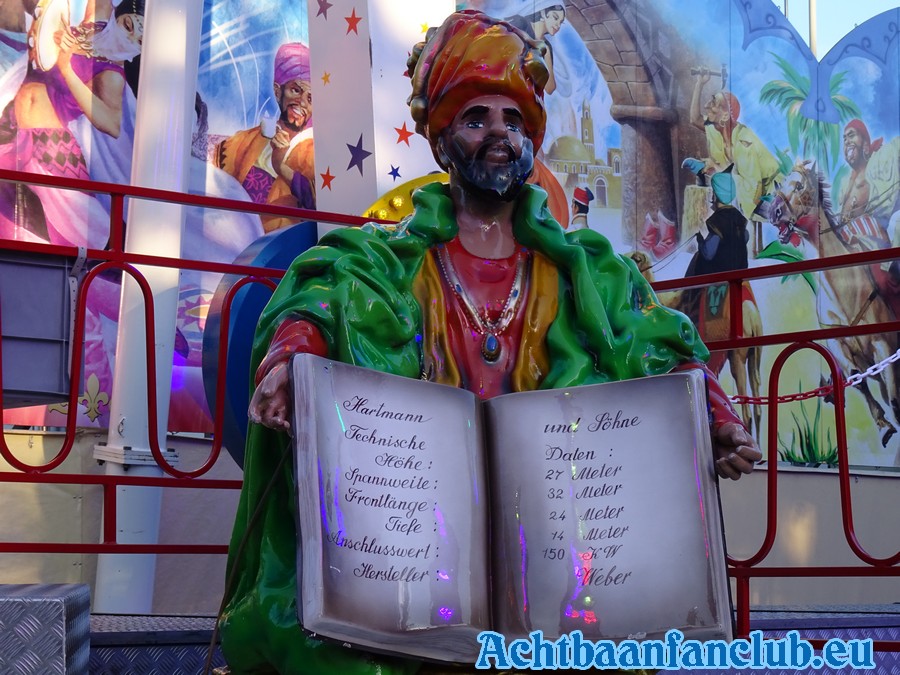 Hartmann und Söhne
Technische Daten :
Höhe : 27 Meter
Spannweite : 32 Meter
Frontlänge : 24 Meter
Tiefe : 14 Meter
Anschlusswert : 150 KW
Hersteller : Weber
Achtbaanfanclub.eu